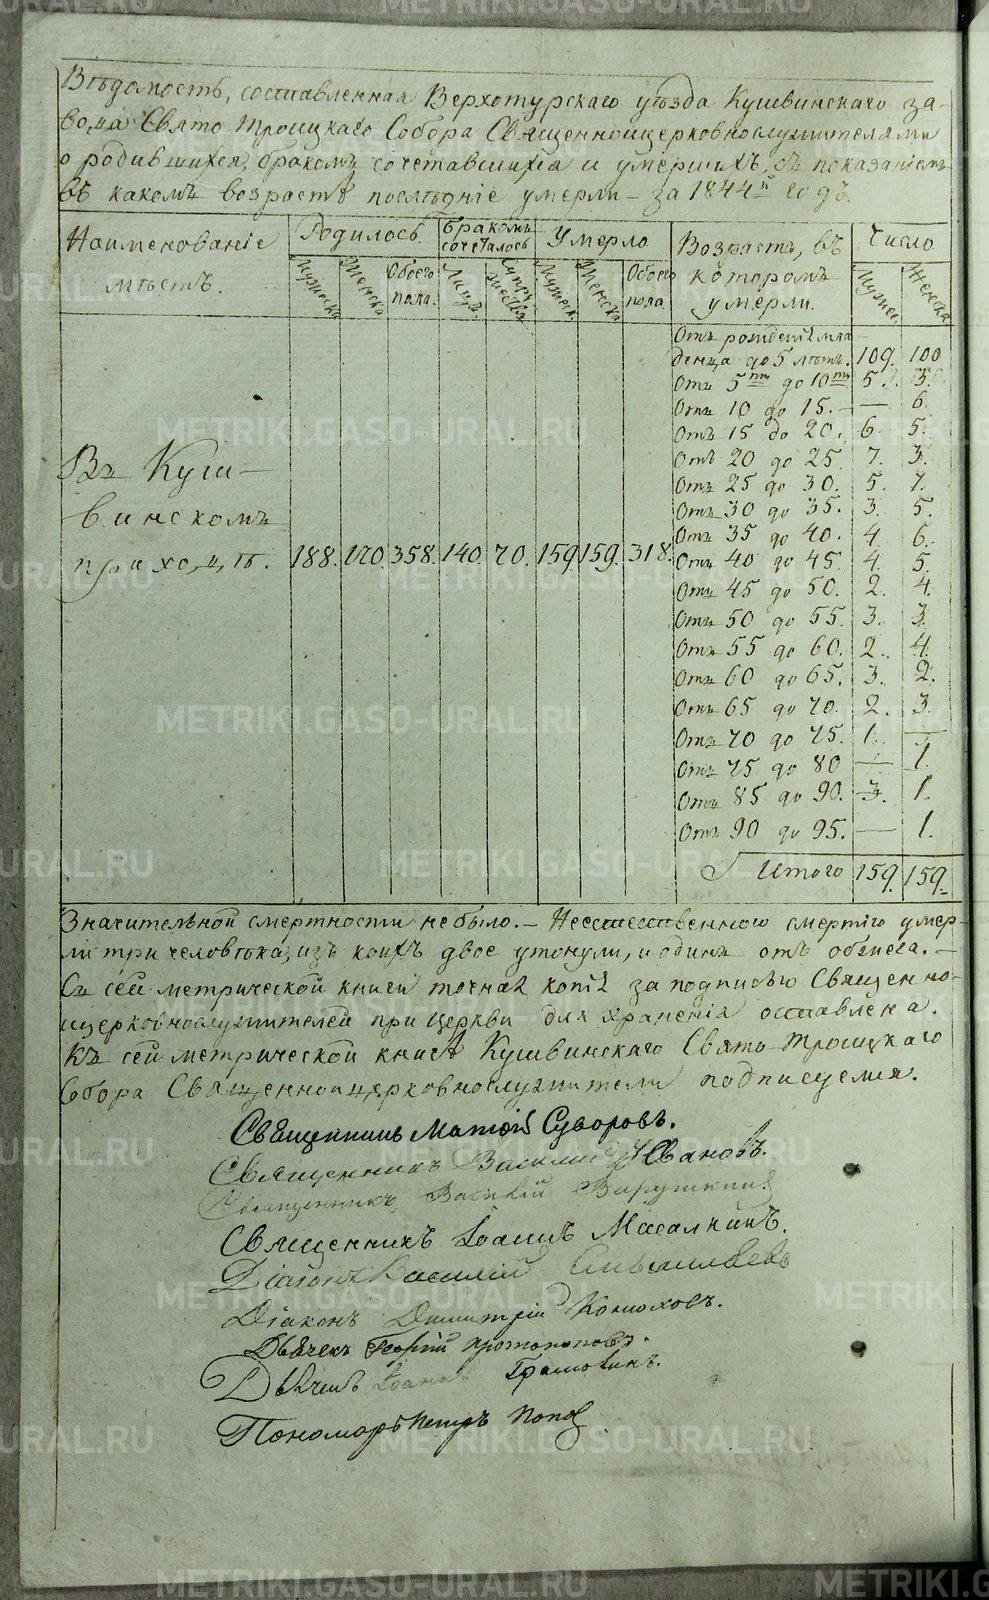 METRIKI.GASO-URAL.RU
Вѣдомость, составленная Верхотурскаго уѣзда Кушвинскаго за-
вода Свято Троицкаго Собора Священноицерковнослужителями
о родившихся, бракомъ сочетавшихся и умершихъ, съ показаніемъ
въ какомъ возрастѣ послѣдніе умерли – за 1844й годъ.
Наименованіе мѣстъ. Родилось. Бракомъ сочеталось Умерло Возрастъ, въ которомъ умерли. Число
Мужеска Женска Обоего пола. Лицъ Мужеск. Женска Обоего пола. Мужес. Женска
Отъ рожденія мла-
денца до 5 лѣтъ. 109. 100
Отъ 5ти до 10ти 5. 3.
Отъ 10 до 15. — 6.
Отъ 15 до 20. 6. 5.
Отъ 20 до 25. 7. 3.
Отъ 25 до 30. 5. 7.
Отъ 30 до 35. 3. 5.
Отъ 35 до 40. 4. 6.
Въ Куш-
винскомъ
приходѣ. 188. 170. 358. 140. 70. 159. 159. 318.
Отъ 40 до 45. 4. 5.
Отъ 45 до 50. 2. 4.
Отъ 50 до 55. 3. 3.
Отъ 55 до 60. 2. 4.
Отъ 60 до 65. 3. 2.
Отъ 65 до 70. 2. 3.
Отъ 70 до 75. 1. —
Отъ 75 до 80 — 1.
Отъ 85 до 90. 3. 1.
Отъ 90 до 95. — 1.
Итого 159. 159.
Значительной смертности не было. – Неестественною смертію умер-
ли три человѣка, изъ коихъ двое утонули, и одинъ отъ
Съ сей метрической книги точная копія за подписью Священно-
ицерковнослужителей при церкви для храненія оставлена.
Къ сей метрической книгѣ Кушвинскаго Свято Троицкаго
Собора Священноицерковнослужители подписуемся.
Священникъ Матѳій Суворовъ.
Священникъ Василий Ивановъ.
Священникъ, Василій
Священникъ Іоаннъ Масалкинъ.
Діаконъ Василій
Діаконъ Димитрій Конюховъ.
Дьячекъ Георгій Протопоповъ.
Дьячекъ Іоаннъ
Пономарь Петръ Поповъ